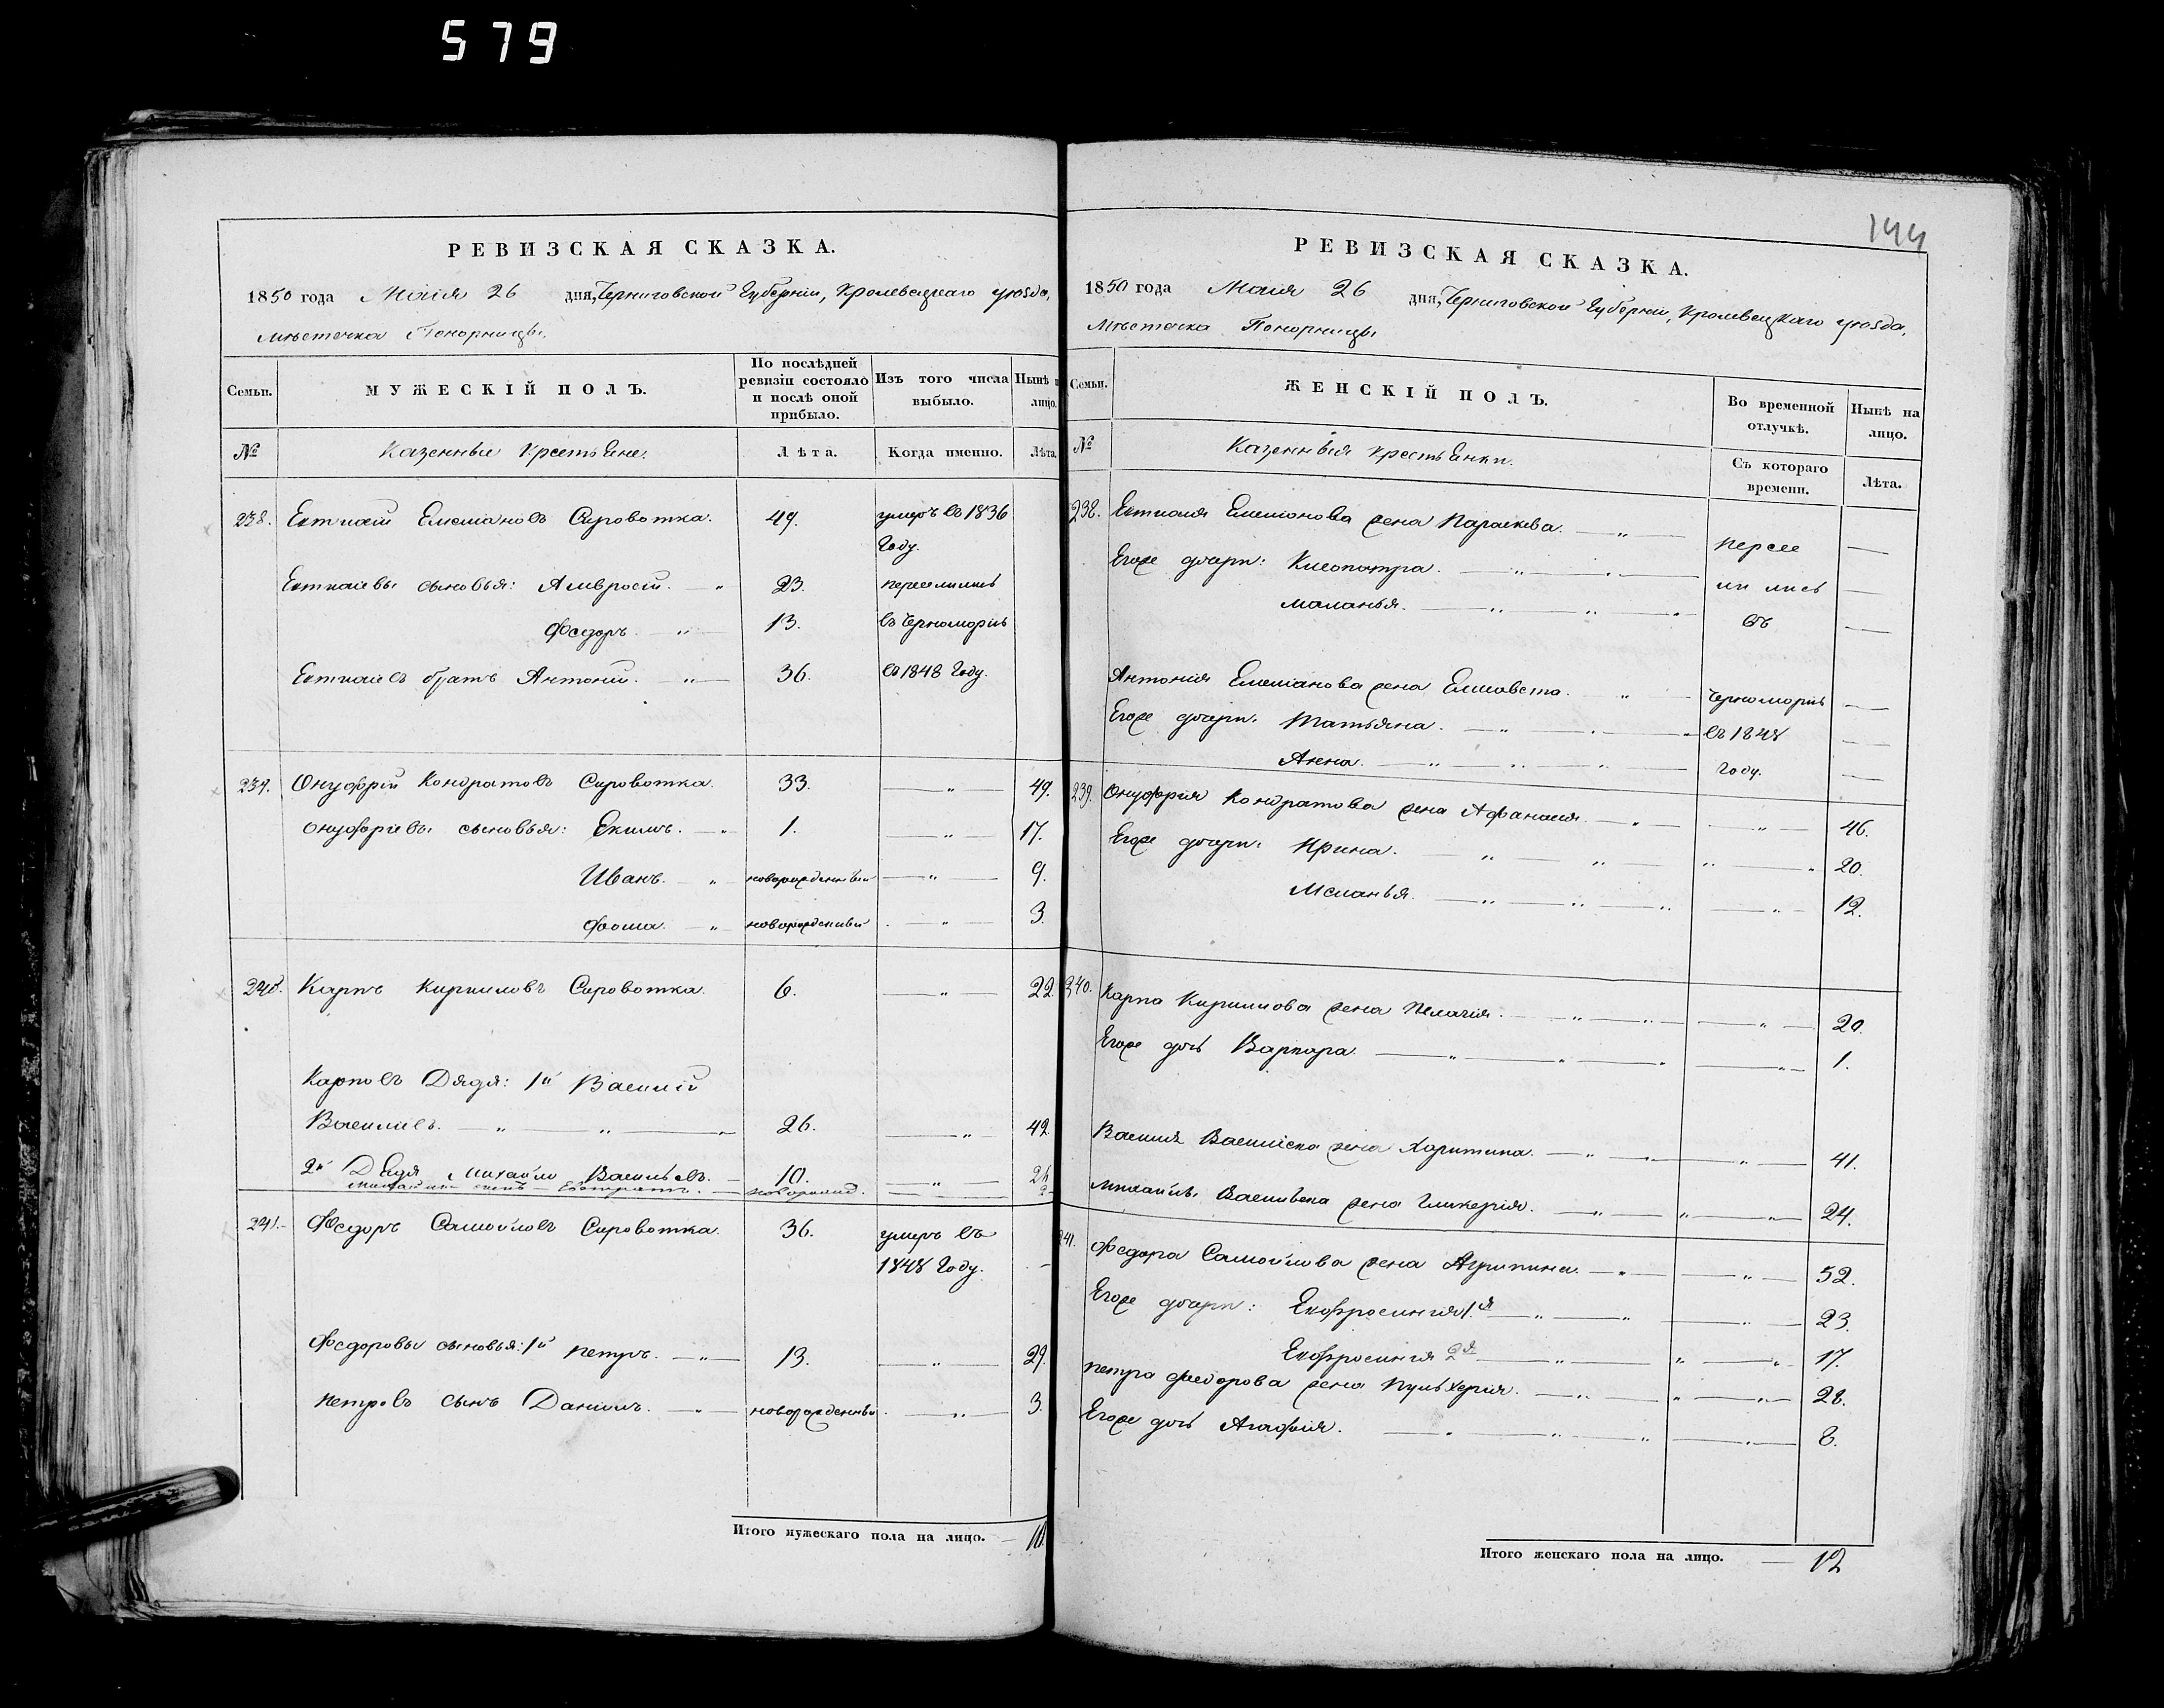 579
РЕВИЗСКАЯ СКАЗКА.
1850 года Маія 26 дня, Черниговской Губерніи, Кролевецкаго уѣзда,
мѣстечка Понорницы.
Семьи.
МУЖЕСКІЙ ПОЛЪ.
По послѣдней ревизіи состояло и послѣ оной прибыло.
Изъ того числа выбыло.
Нынѣ н лицо.
№
Казенные крестьяне.
Лѣта.
Когда именно.
Лѣта.
238. Евтихій Емеліановъ Сыровотка. 49. умеръ въ 1836
Году.
Евтихіевы сыновья: Амвросій. — „ 23. переселились
Федоръ. — „ — 13. въ Черноморію
Евтихіевъ братъ Антоній. — „ — 36. въ 1848 Году.
239. Онуфрій Кондратовъ Сыровотка. 33. — „ — 49.
Онуфріевы сыновья: Екимъ. — „ 1. — „ — 17.
Иванъ. — „ новорожденный — „ — 9.
Фома. — „ — новорожденный — „ — 3.
240. Карпъ Кириловъ Сыровотка. 6. — „ — 22.
Карповъ Дядя: 1й Василій
Васильевъ. — „ „ — „ 26. — „ — 42.
2й Дядя Михайло Васильевъ. — 10. — „ — 26
241. Федоръ Самойловъ Сыровотка. 36. умеръ въ
1848 Году. —
Федоровы сыновья: 1й Петръ. — „ — 13. — „ — 29.
Петровъ сынъ Данило. — „ — новорожденный. — „ — 3.
Итого мужескаго пола на лицо. — 10.
144
РЕВИЗСКАЯ СКАЗКА.
1850 года Маія 26 дня, Черниговской Губерніи, Кролевецкаго уѣзда,
Мѣстечка Понорницы
Семьи.
ЖЕНСКІЙ ПОЛЪ.
Во временной отлучкѣ.
Нынѣ на лицо.
№
Казенныя крестьянки.
Съ котораго времени.
Лѣта.
238. Евтихія Емеліанова жена Параскева. — „ — Пересе —
Егоже дочери: Клеопатра. — „ — „ — ли лись —
Маланья. — „ — „ — „ въ —
Антонія Емеліанова жена Елисавета. „ — Черноморію —
Егоже дочери: Татьяна. — „ — „ — „ въ 1848 —
Анна. — „ — „ — „ — Году. —
239. Онуфрія Кондратова жена Афанасія. — „ — — „ — 46.
Егоже дочери: Ирина. — „ — „ — „ — „ 20.
Меланья. — „ — „ — „ — „ — 12.
240. Карпа Кирилова жена Пелагія. — „ — „ — — „ — 20.
Егоже дочь Варвара. — „ — „ — „ — „ — 1.
Василія Васильева жена Харитина. — „ — „ — „ — 41.
Михайлы Васильева жена Гликерія. — „ — „ — „ — 24.
241. Федора Самойлова жена Агрипина. — „ — — „ — 52.
Егоже дочери: Евфросинія 1я — „ — „ — „ — 23.
Евфросинія 2я — „ — „ — „ 17.
Петра Федорова жена Пульхерія. — „ — „ — „ — 28.
Егоже дочь Агафія. — „ — „ — „ — „ — 8.
Итого женскаго пола на лицо. — 12